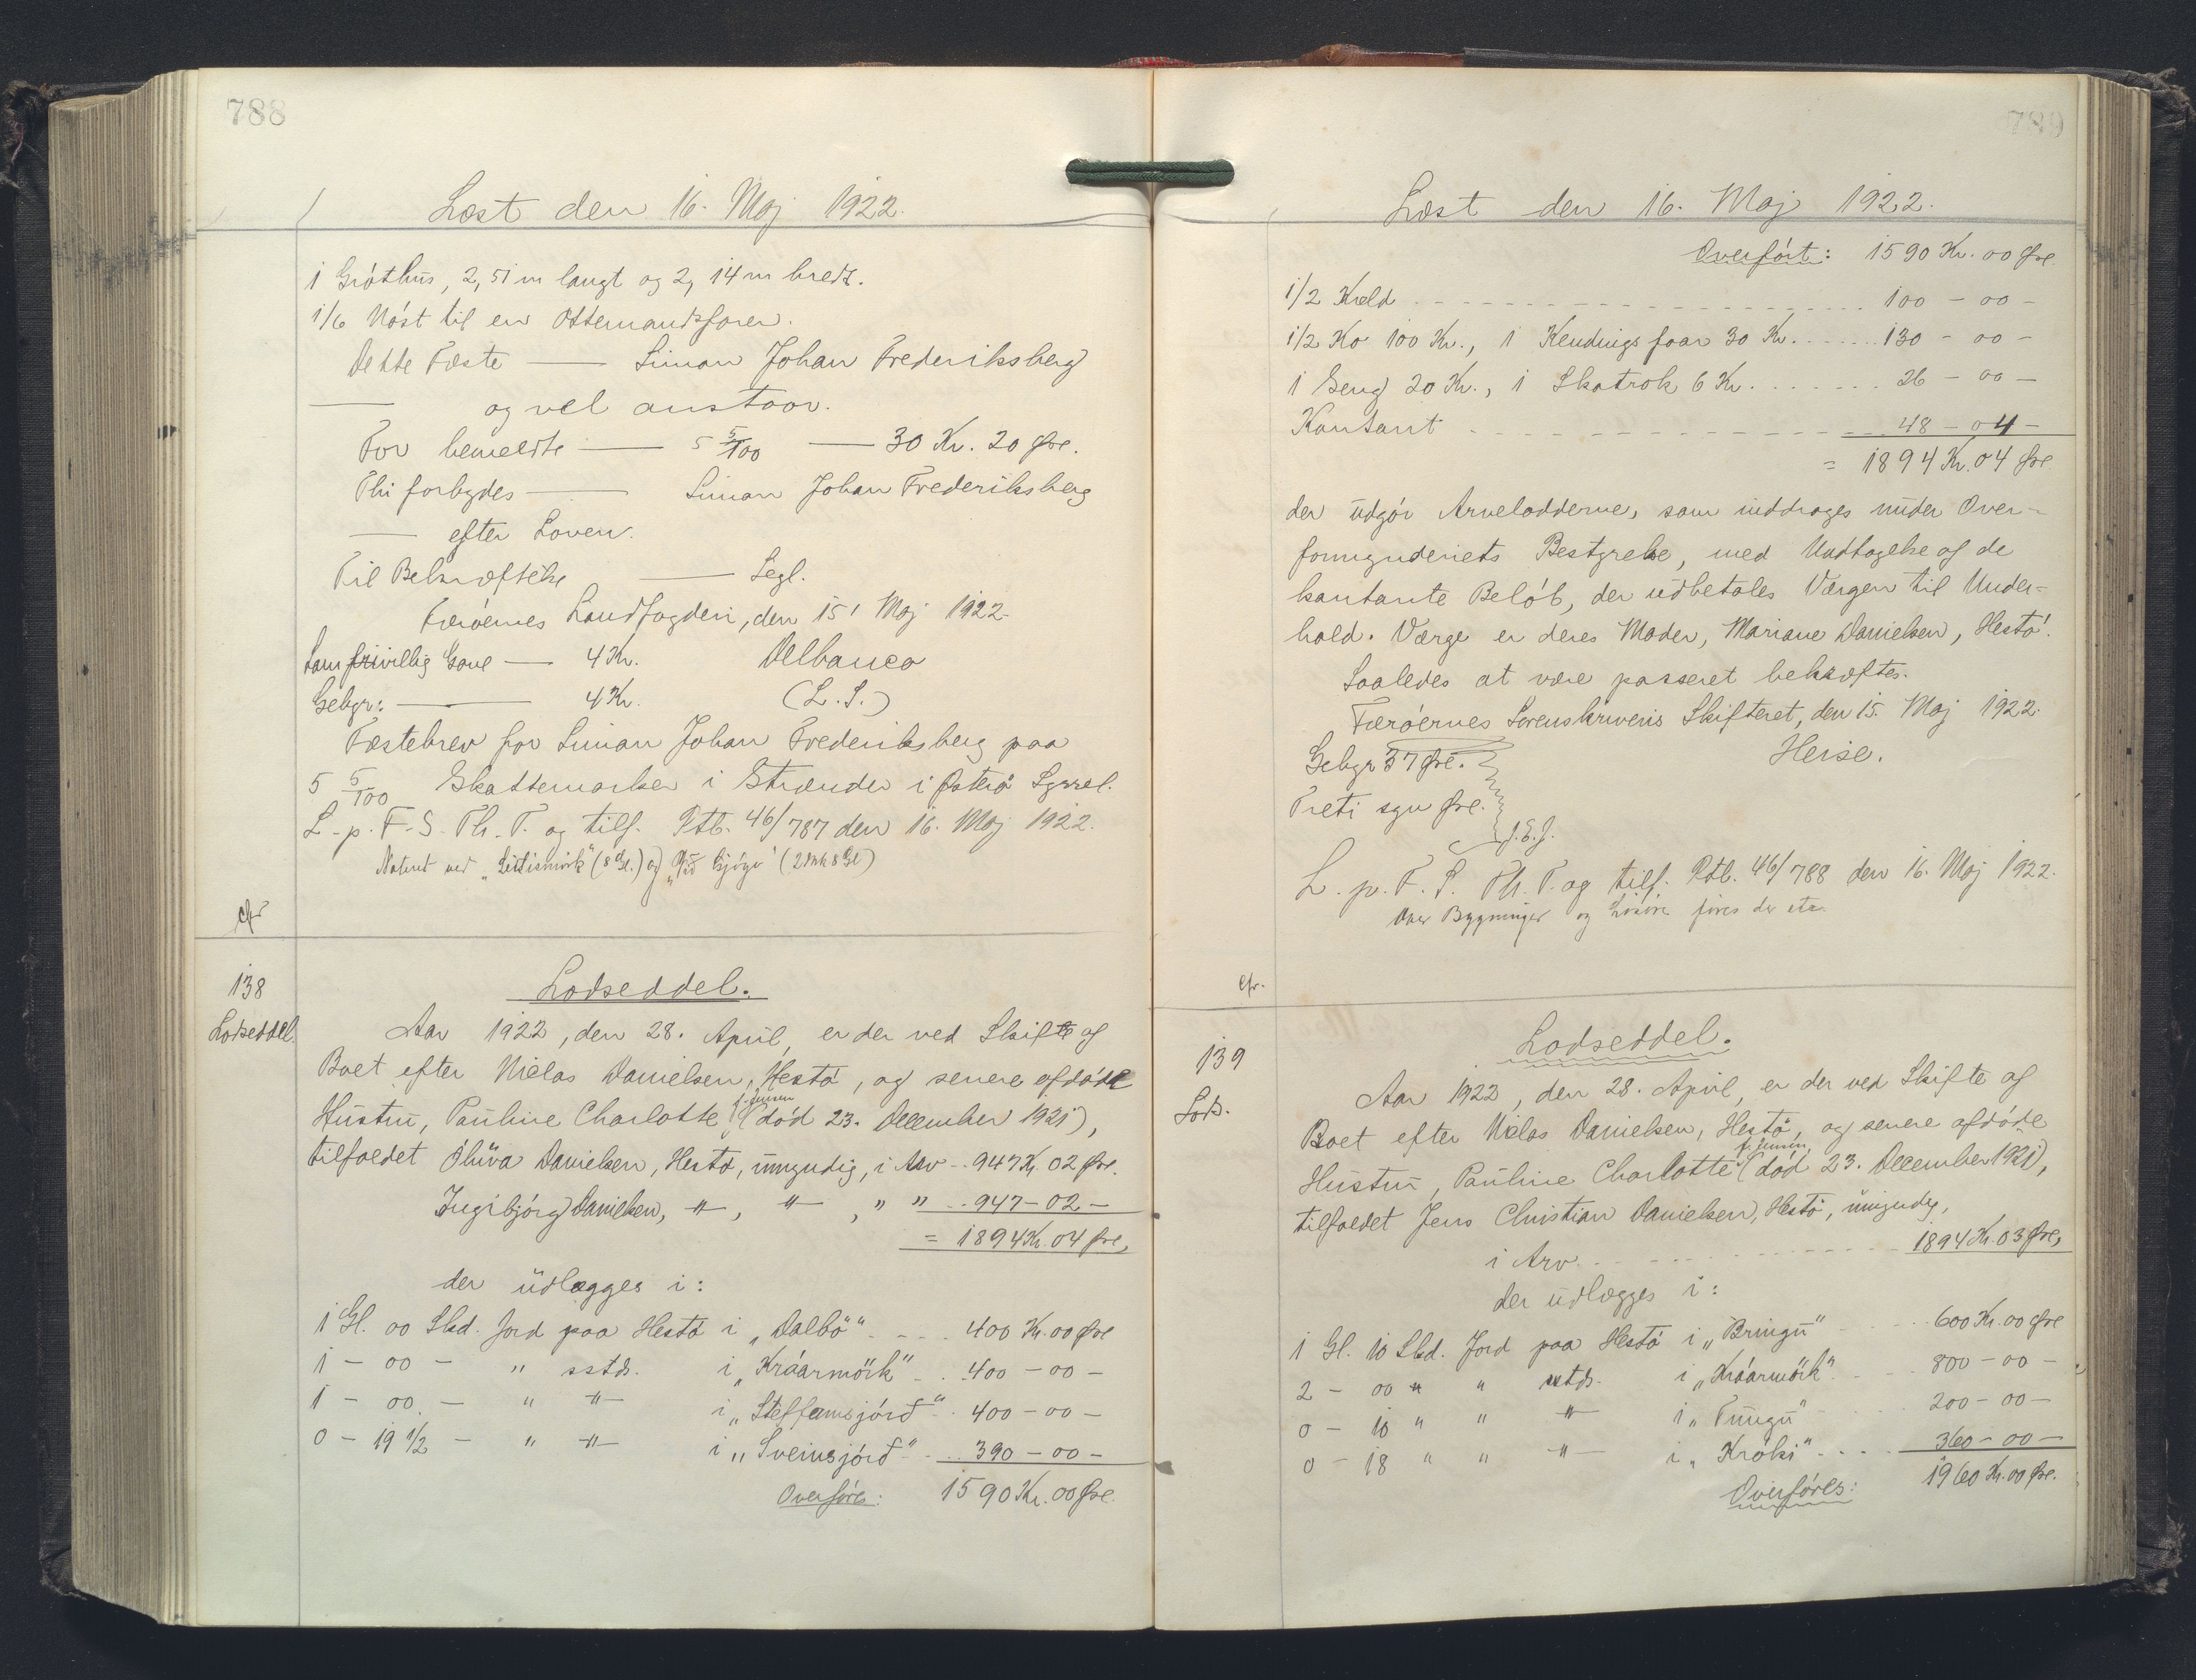 788
Læst den 16. Maj 1922.
1 Gróthús, 2,51 m langt og 2,14 m bredt.
1/6 Nóst til en Ottemandsfarer.
Dette Fæste — Simon Johan Frederiksberg
— og vel anstaar.
For bemeldte — 5 5/100 — 30 Kr. 20 Øre.
Thi forbydes — Simon Johan Frederiksberg
— efter Loven.
Til Bekræftelse — Segl.
Færóernes Landfogderi, den 15' Maj 1922.
Som frivillig Gave — 4 Kr. Delbanco
Gebyr: — 4 Kr. (L.S.)
Fæstebrev for Simon Johan Frederiksberg paa
5 5/100 Skattemarker i Strænder i Østerø Syssel.
L. p. F. S. Th. T. og tilf. Ptb. 46/787 den 16. Maj 1922.
Noteret ved „Leitismörk" (8 Gl.) og „Við Gjógv" (2 Mk 8 Gl)
cfr
138
Lodseddel.
Lodseddel.
Aar 1922, den 28. April, er der ved Skifte af
Boet efter Niclas Danielsen, Hestó, og senere afdóde
Hustru, Pauline Charlotte f. Jensen (dód 23. December 1921),
tilfaldet Óluva Danielsen, Hestó, umyndig, i Arv - 947 Kr. 02 Øre.
Ingibjórg Danielsen, -"-, -"-, " " .. 947 - 02 -
= 1894 Kr. 04 Øre,
der udlægges i:
1 Gl. 00 Skd. Jord paa Hestó i „Dalbö" - - - 400 Kr. 00 Øre
1 - 00 - " sstds. i „Króarmörk" - . . 400 - 00 -
1 - 00. - " -"- i „Steffansjórð" . 400 - 00 -
0 - 19 1/2 - " -"- i „Sveinsjórð" - .. 390 - 00 -
Overfóres: 1590 Kr. 00 Øre.
789
Læst den 16. Maj 1922.
Overfórt: 1590 Kr. 00 Øre.
1/2 Kæld - - - - - - - - 100 - 00 -
1/2 Ko 100 Kr., 1 Kendingsfaar 30 Kr. . . . . . . 130 - 00 -
1 Seng 20 Kr., 1 Skatrok 6 Kr. . . . . . . . 26 - 00 -
Kontant - - - - - - - - 48 - 04 -
= 1894 Kr. 04 Øre
der udgór Arvelodderne, som inddrages under Over-
formynderiets Bestyrelse, med Undtagelse af de
kontante Belób, der udbetales Værgen til Under-
hold. Værge er deres Moder, Mariane Danielsen, Hestó.
Saaledes at være passeret bekræftes.
Færóernes Sorenskriveris Skifteret, den 15. Maj 1922.
Gebyr 37 Øre. Heise.
Treti syv Øre.
J.E.J.
L. p. F. S. Th. T. og tilf. Ptb. 46/788 den 16. Maj 1922.
Over Bygninger og Lösöre föres der etc.
cfr.
139
Lods.
Lodseddel.
Aar 1922, den 28. April, er der ved Skifte af
Boet efter Niclas Danielsen, Hestó, og senere afdóde
Hustru, Pauline Charlotte f. Jensen (dód 23. December 1921),
tilfaldet Jens Christian Danielsen, Hestó, umyndig,
i Arv. - - - - - - 1894 Kr. 03 Øre,
der udlægges i:
1 Gl. 10 Skd. Jord paa Hestó i „Bringu" - - - 600 Kr. 00 Øre
2 - 00 " " sstds. i „Króarmörk". - - - 800 - 00 -
0 - 10 " " -"- i „Tungu" - - - 200 - 00 -
0 - 18 " " -"- i „Króki" - - - 360 - 00 -
Overfóres: 1960 Kr. 00 Øre.